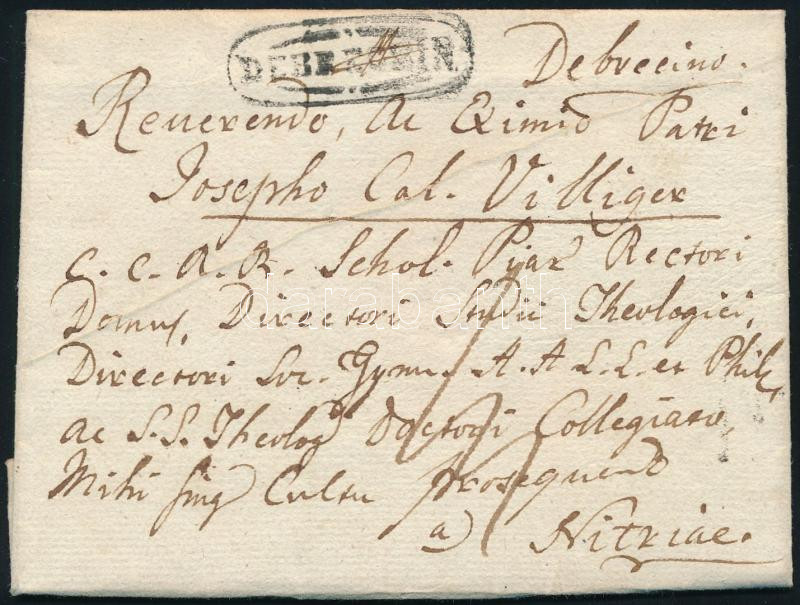 DEBRECZIN
Debrecino.
Reverendo, Ac Eximio Patri
Josepho Cal. Villiger
C. C. A. R. Schol. Piar Rectori
Domus, Directori Studii Theologici,
Directori Loc. Gymn. A. A. L. L. et Phil,
ac S. S. Theolog Doctori Collegiato,
Mihi sing Cultu prosequendo
a Nitriae.
darabanth